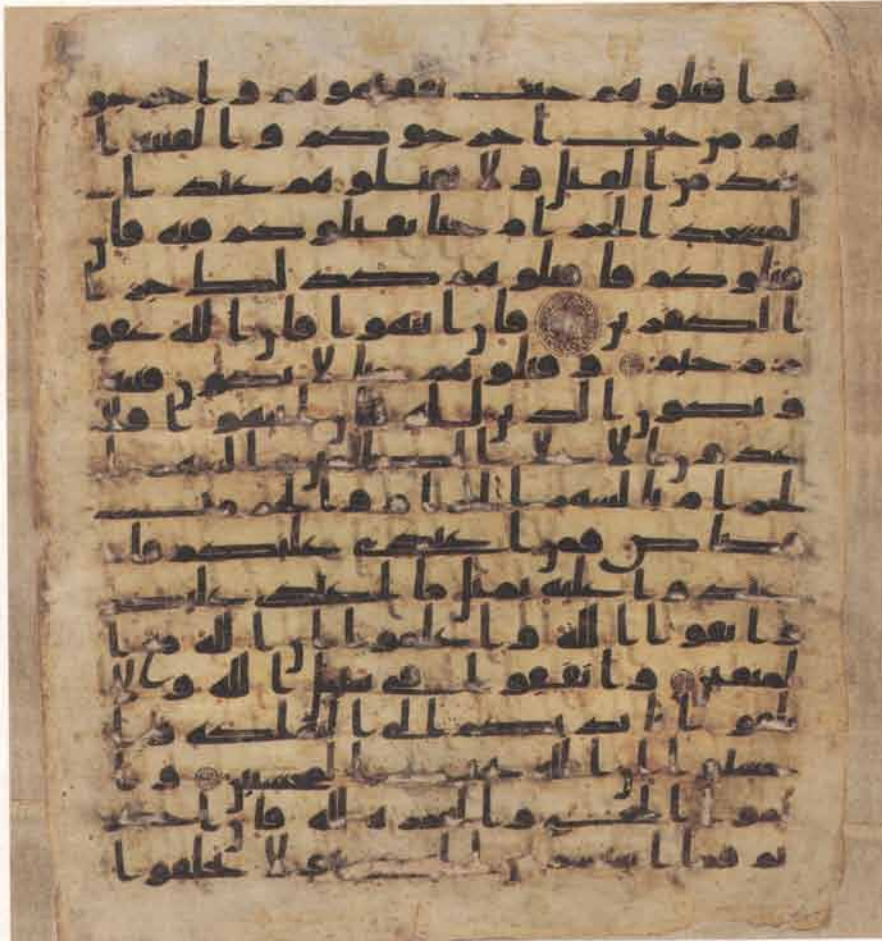 واقتلوهم حيث ثقفتموهم واخرجو
هم من حيث اخرجوكم والفتنه ا
شد من القتل ولا تقتلوهم عند ا
لمسجد الحرام حتى يقتلوكم فيه فان
قتلوكم فاقتلوهم كذلك جزا
الكفرين فان انتهوا فان الله غفو
ر رحيم وقتلوهم حتى لا تكون فتنه
ويكون الدين لله فان انتهوا فلا
عدون الا على الظلمين الشهر ا
لحرام بالشهر الحرام والحرمت
قصاص فمن اعتدى عليكم فا
عتدوا عليه بمثل ما اعتدى عليكم
واتقوا الله واعلموا ان الله مع ا
لمتقين وانفقوا في سبيل الله ولا
تلقوا بايديكم الى التهلكه وا
حسنوا ان الله يحب المحسنين وا
تموا الحج والعمره لله فان احصر
تم فما استيسر من الهدي ولا تحلقوا